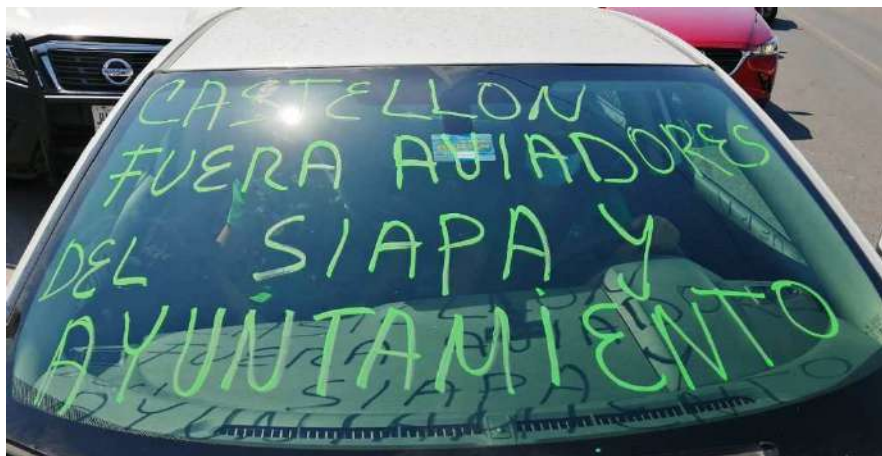 CASTELLON
FUERA AVIADORES
DEL SIAPA Y
AYUNTAMIENTO